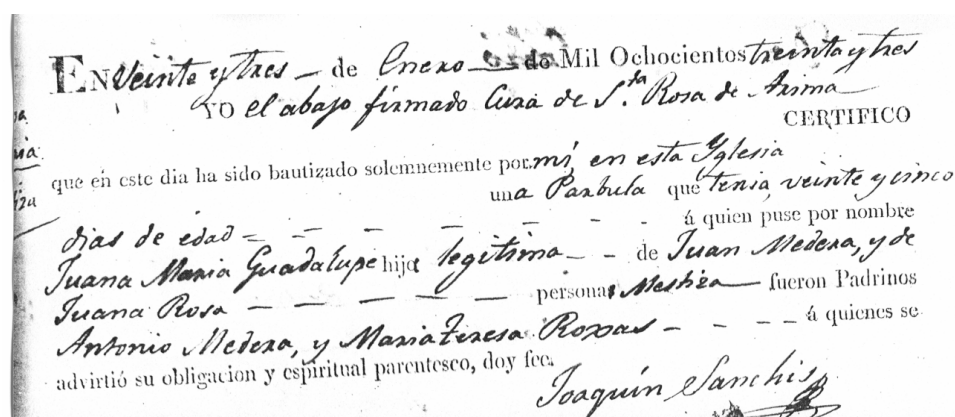 EN Veinte y tres — de Enero — de Mil Ochocientos treinta y tres
YO el abajo firmado Cura de S.ta Rosa de Arima
CERTIFICO
que en este dia ha sido bautizado solemnemente por mí, en esta Yglesia
una Parbula que tenia, veinte y cinco
dias de edad – – – – – – – – á quien puse por nombre
Juana Maria Guadalupe hija legitima – – de Juan Medera, y de
Juana Rosa – – – – – – personas Mestiza — fueron Padrinos
Antonio Medera, y Maria Teresa Roxas – – – – á quienes se
advirtió su obligacion y espiritual parentesco, doy fee.
Joaquín Sanchis